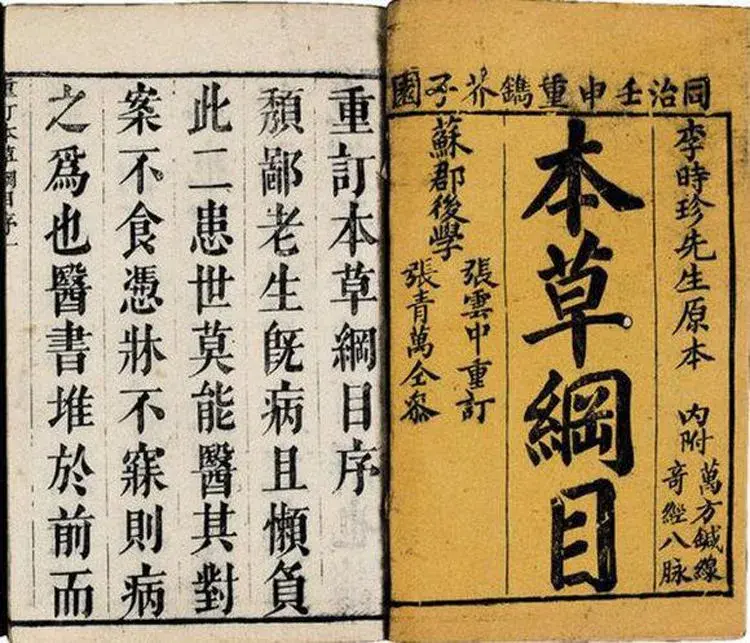 同治壬申重鐫芥子園
李時珍先生原本
內附
萬方鍼線
奇經八脉
本草綱目
張雲中重訂
蘇郡後學
張青萬仝參
重訂本草綱目序
頽鄙老生旣病且懶負
此二患世莫能醫其對
案不食憑牀不寐則病
之爲也醫書堆於前而
重訂本草綱目序一